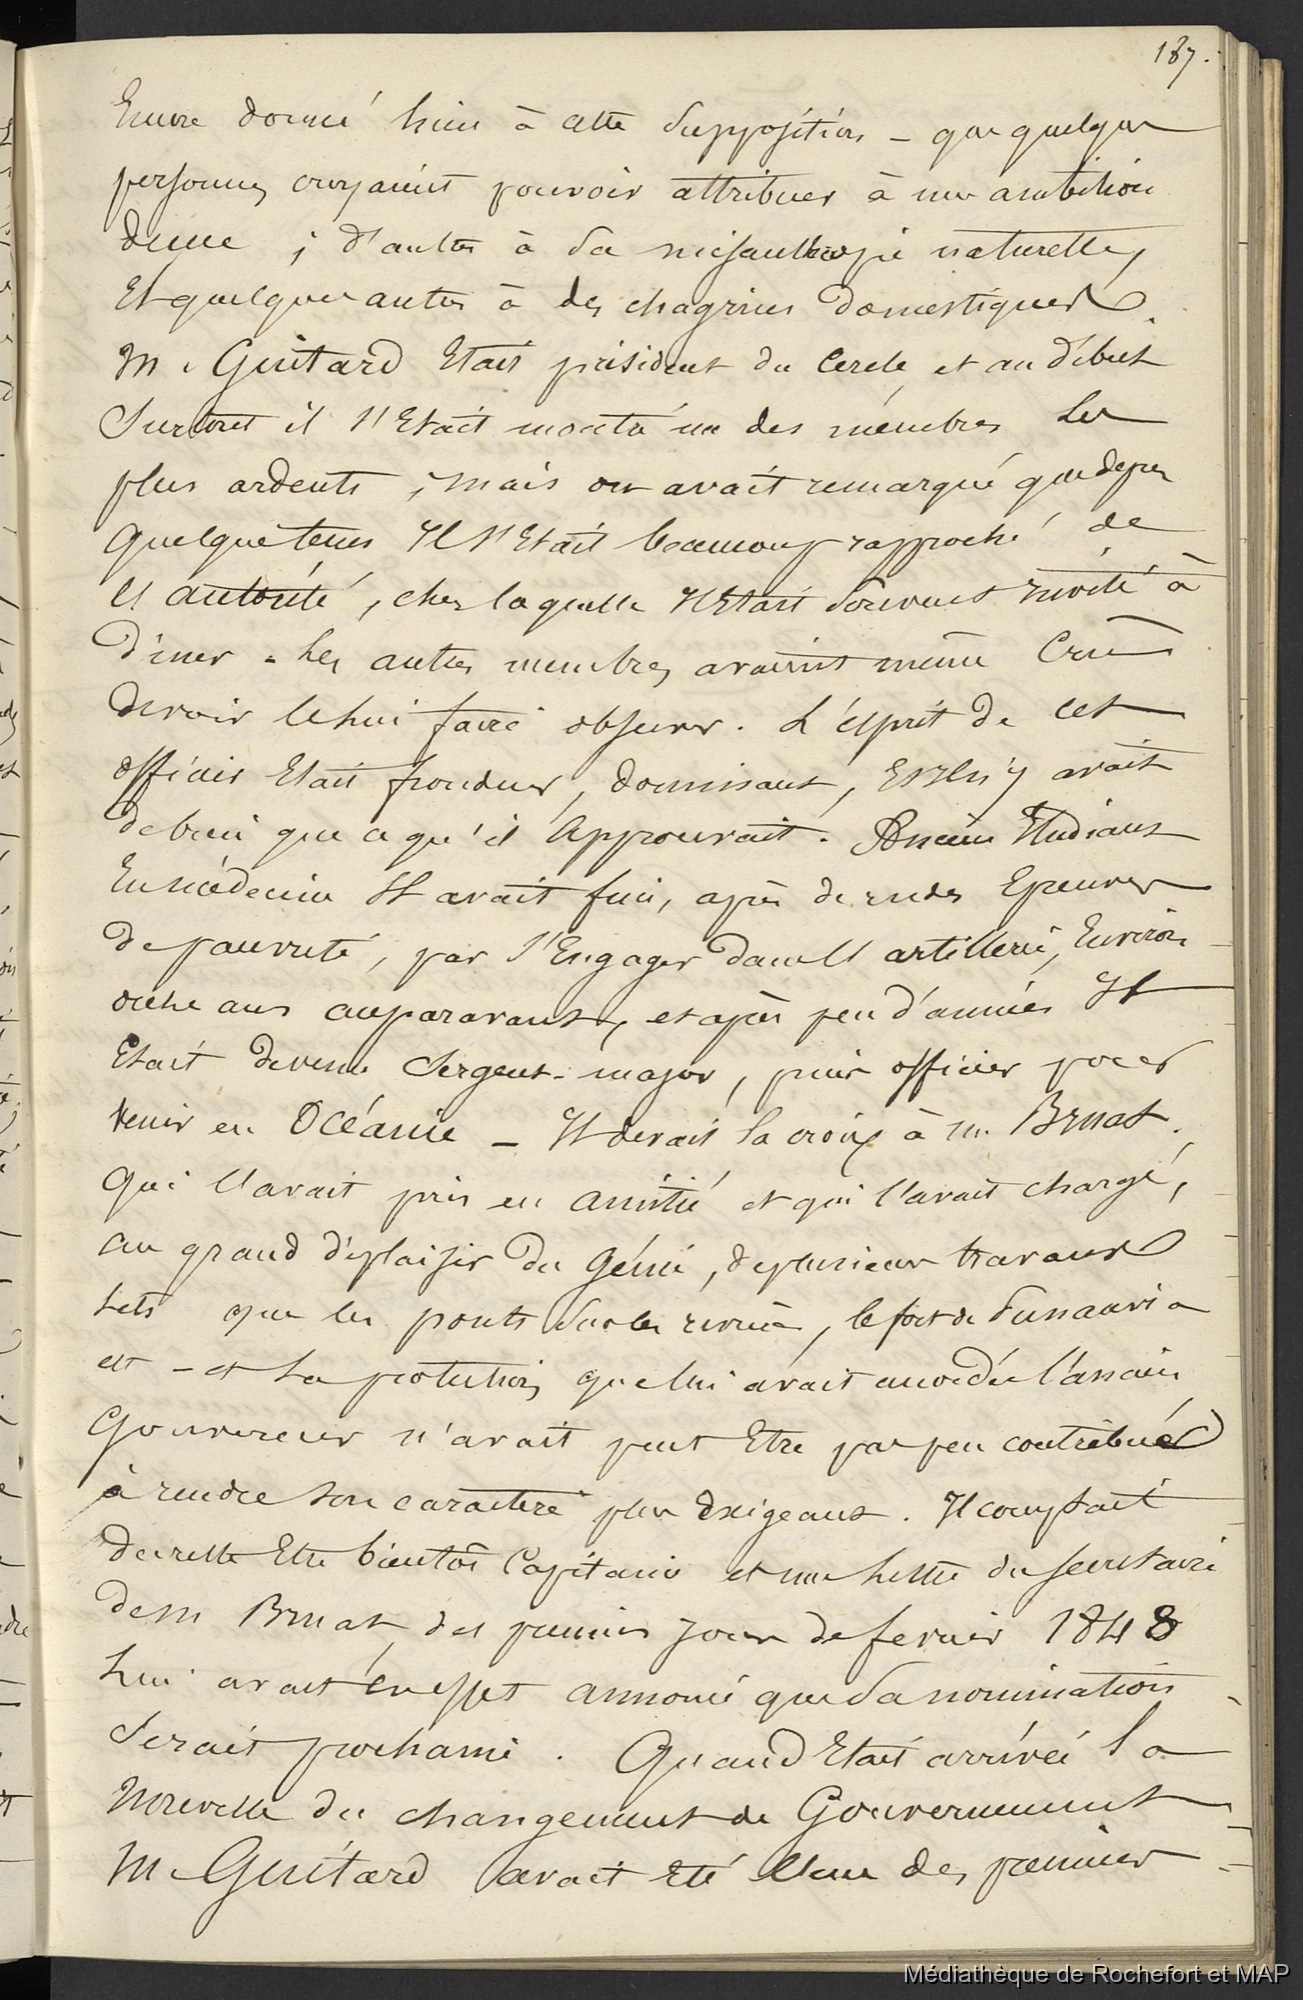 187.
Encore donné lieu à cette supposition - que quelques
personnes croyaient pouvoir attribuer à une ambition
déçue ; d'autres à sa misanthropie naturelle,
Et quelques autres à des chagrins domestiques.
M. Guitard Etait président du Cercle, et au début
Surtout il s'Etait montré un des membres les
plus ardents ; mais on avait remarqué que depuis
quelque tems Il s'Etait beaucoup rapproché de
l'autorité, chez laquelle Il Etait Souvent invité à
diner - Les autres membres avaient même Cru
devoir le lui faire observer. L'esprit de cet
officier Etait frondeur, dominant, Et Il n'y avait
de bien que ce qu'il Approuvait. Ancien Etudiant
En médecine Il avait fini, après de rudes Epreuves
de pauvreté, par s'Engager dans l'artillerie, Environ
onze ans auparavant, et après peu d'années Il
Etait devenu Sergent-major, puis officier pour
venir en Océanie - Il devait la croix à M. Bruat.
qui l'avait pris en amitié et qui l'avait chargé,
au grand déplaisir du Génie, de plusieurs travaux
tels que les ponts sur les rivières, le fort de Punaavia
etc - et la protection que lui avait accordée l'ancien
Gouverneur n'avait peut Etre pas peu contribué
à rendre son caractère plus Exigeant. Il comptait
du reste Etre bientôt Capitaine et une lettre du secrétaire
de M Bruat, des premiers jours de fevrier 1848
lui avait En effet annoncé que Sa nomination
Serait prochaine. Quand Etait arrivée la
Nouvelle du changement de Gouvernement
M. Guitard avait Eté l'un des premiers
Médiathèque de Rochefort et MAP